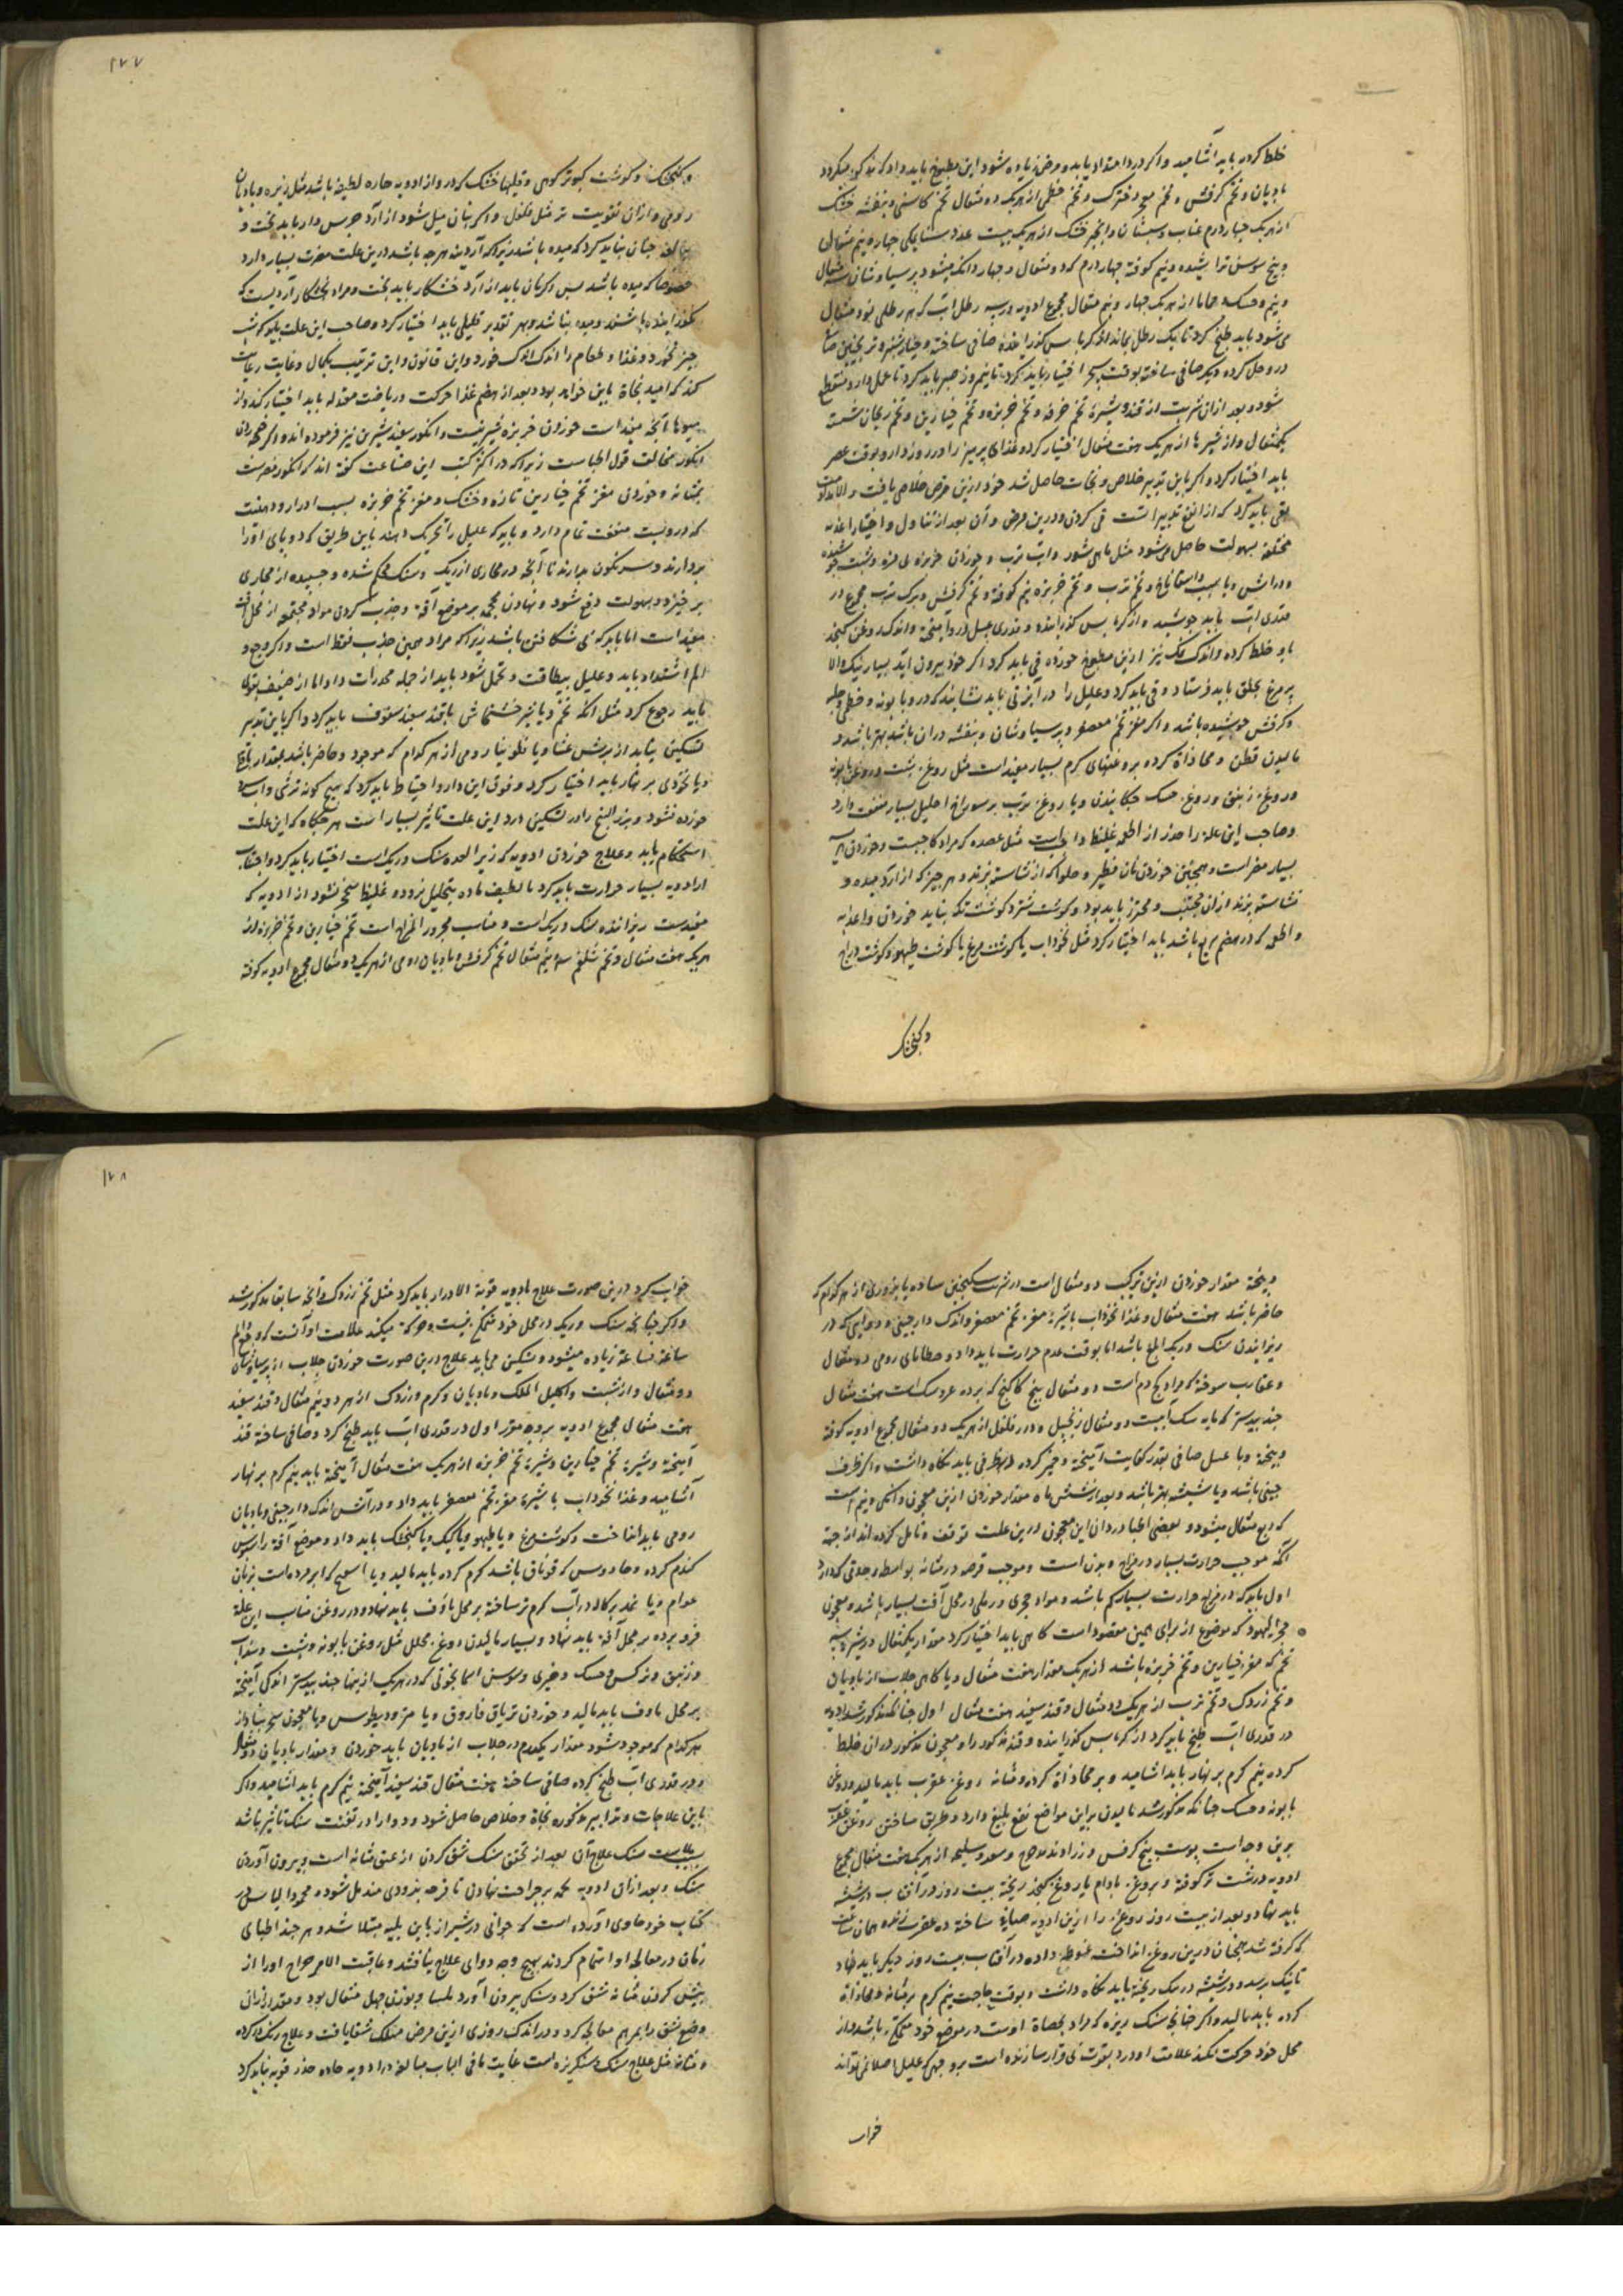 خلط کرده باید آشامید و اکر درد امتداد یابد و مرض زیاده شود این مطبوخ باید داد که مذکور میکردد
بادیان و تخم کرفس و تخم خطمی از هریک دو مثقال تخم کاسنی و بنفشه خشک
از هریک چهار درم عناب و سپستان و انجیر خشک از هریک بیست عدد
و بیخ سوسن تراشیده و نیم کوفته چهار درم که دو مثقال و چهار دانکه میشود پرسیاوشان
و نیم و حسک از هریک چهار و نیم مثقال مجموع ادویه در سه رطل آب که هر رطلی نود مثقال
می شود باید طبخ کرد تا یک رطل بماند از کرباس کذرانده صافی ساخته و خیار شنبر و ترنجبین
در و حل کرده دیکر صافی ساخته بوقت سحر اختیار باید کرد تا نیم روز صبر باید کرد تا عمل دارو منقطع
شود و بعد از آن شربت از قند و شیره تخم خرفه و تخم خربزه و تخم خیارین و تخم ریحان شسته
یکمثقال و از شیرها از هریک هفت مثقال اختیار کرد و غذای پرهیز را در روز دارو بوقت عصر
باید اختیار کرد و اکر باین تدبیر خلاص و نجات حاصل شد خود ازین مرض خلاصی یافت و الا
قی باید کرد که از انفع تدبیرات قی کردن در این مرض و آن بعد از تناول و اختیار اغذیه
مختلفه بسهولت حاصل می شود مثل ماهی شور و آب ترب و خوردن خربزه بی مزه و شبت
و تخم ترب و تخم خربزه نیم کوفته و تخم کرفس و برک ترب مجموع در
قدری آب باید جوشید و از کرباس کذرانده و قدری عسل در و آمیخته و اندک روغن کنجد
با و خلط کرده و اندک نمک نیز ازین مطبوخ خورده قی باید کرد اکر خود بیرون آید بسیار نیک والا
پر مرغ بحلق باید فرستاد و قی باید کرد و علیل را در آبزنی باید نشانید که در و بابونه و خطمی و حلبه
و کرفس جوشیده باشد و اکر مغز تخم معصفر و پرسیاوشان و بنفشه در آن باشد بهتر باشد و
مالیدن قطن و محاذاة کرده بروغنهای کرم بسیار مفید است مثل روغن شبت و روغن بابونه
و روغن زنبق و روغن حسک چکانیدن و یا روغن عقرب بر سوراخ احلیل بسیار منفعت دارد
و صاحب این علة را حذر از اطعمه غلیظه واجب است مثل عصیده که مراد کاچیست و خوردن
بسیار مضر است و همچنین خوردن نان فطیر و حلوا که از نشاسته پزند و هر چیز که از آرد میده و
نشاسته پزند از آن مجتنب و محترز باید بود و کوشت شتر و کوشت تکه نباید خوردن و اغذیه
و اطعمه که در هضم سریع باشد باید اختیار کرد مثل نخوداب یا کوشت مرغ یا کوشت طیهو و کوشت دراج
و کنجشک
۱۲۷
و کنجشک و کوشت کبوتر کوهی و قلیها خشک کرده و از ادویه حاره لطیفه باشد مثل زیره و بادیان
رومی و از آن تقویت تر مثل فلفل و اکر بنان میل شود از آرد جوس دار باید پخت و
مبالغه چنان نباید کرد که میده باشد زیرا که آردینه هرچه باشد درین علت مضرت بسیار دارد
خصوصا که میده باشد پس اکر نان باید از آرد خشکار باید پخت و مراد بخشکار آردیست که
کذرانیده باشند و میده نباشد و بهر تقدیر قلیلی باید اختیار کرد و صاحب این علت
چیز نخورد و غذا و طعام را اندک اندک خورد و این قانون و این ترتیب بکمال و غایت رعایت
کند که امید نجاة باین خواهد بود و بعد از هضم غذا حرکت و ریاضت معتدله باید اختیار کند و از
میوها آنچه مفید است خوردن خربزه شیرینست و انکور سفید شیرین نیز فرموده اند و اکرچه
انکور مخالف قول اطباست زیرا که در اکثر کتب این صناعت کفته اند که انکور مضرست
بمثانه و خوردن مغز تخم خیارین تازه و خشک و مغز تخم خربزه بسبب ادرار و دهنیت
که در ویست منفعت تمام دارد و باید که علیل را تحریک دهند باین طریق که دو پای او را
بردارند و سرنکون بدارند تا آنچه در مجاری از ریک و سنک محکم شده و چسبیده از مجاری
برخیزد و بسهولت دفع شود و نهادن محجمه بر موضع آفة و جذب کردن مواد مجتمعه از محل آفت
مفید است اما باید که بی شکافتن باشد زیرا که مراد همین جذب فقط است و اکر وجع و
الم اشتداد یابد و علیل بیطاقت و تحمل شود باید از جمله مخدرات داد اما از ضعیف
باید رجوع کرد مثل آنکه تخم و یا شیر خشخاش با قند سفید سفوف باید کرد و اکر باین تدبیر
تسکین نیابد از برشعثا و یا فلونیا رومی از هر کدام که موجود و حاضر باشد بمقدار
و یا نخودی بر نهار باید اختیار کرد و فوق این دارو احتیاط باید کرد که هیچ کونه ترشی و آب
خورده نشود و بزر البنج را در تسکین درد این علت تاثیر بسیار است هرچکاه که این علت
استحکام یابد و علاج خوردن ادویه که زیرا لحده سنک و ریک است اختیار باید کرد و اجتناب
از ادویه بسیار حرارت باید کرد تا لطیف ماده بتحلیل نرود و غلیظ متحجر نشود از ادویه که
مفیدست ریزاننده سنک و ریک است و مناسب محرور المزاج است تخم خیارین و تخم خربزه از
هریک هفت مثقال و تخم شلغم سه و نیم مثقال تخم کرفس و بادیان رومی از هریک دو مثقال مجموع ادویه کوفته
و بیخته مقدار خوردن ازین ترکیب دو مثقال است از شربت سکنجبین ساده یا بزوری از هرکدام که
حاضر باشد هفت مثقال و غذا نخوداب با شیره مغز تخم معصفر و اندک دارچینی و دوایی که در
ریزانیدن سنک و ریک ابلغ باشد اما بوقت عدم حرارت باید داد و مصطکای رومی دو مثقال
و عقارب سوخته که مراد کژدم است دو مثقال بیخ کاکنج که پرده عروسک است هفت مثقال
جندبیدستر که خایه سک آبیست دو مثقال زنجبیل و دارفلفل از هریک دو مثقال مجموع ادویه کوفته
و بیخته و با عسل صافی بقدر کفایت آمیخته و خمیر کرده در ظرفی باید نکاه داشت و اکر ظرف
چینی باشد و یا شیشه بهتر باشد و بعد از شش ماه مقدار خوردن ازین معجون دانکی و نیم است
که ربع مثقال میشود و بعضی اطبا در دادن این معجون درین علت توقف و تامل کرده اند از جهة
آنکه موجب حرارت بسیار در مزاج و بدن است و موجب قرحه در مثانه بواسطه حدتی که دارد
اول باید که در مزاج حرارت بسیار کم باشد و مواد حجری و رملی در محل آفت بسیار باشد و معجون
حجر الیهود که موضوع از برای همین مقصود است کاهی باید اختیار کرد مقدار یکمثقال در شیره
تخم که مغز خیارین و تخم خربزه باشد از هریک مقدار هفت مثقال و یا کاهی جلاب از بادیان
و تخم زردک و تخم ترب از هریک دو مثقال و قند سفید هفت مثقال اول چنانکه مذکور شد ادویه
در قدری آب طبخ باید کرد از کرباس کذرانده و قند مذکور را و معجون مذکور در آن خلط
کرده نیم کرم بر نهار باید اشامید و بر محاذاة کرده و مثانه روغن عقرب باید مالید و روغن
بابونه و حسک چنانکه مذکور شد مالیدن براین مواضع نفع بلیغ دارد و طریق ساختن روغن عقرب
برین وجه است پوست بیخ کرفس و زراوند مدحرج و سعد و سلیخه از هریک هفت مثقال مجموع
ادویه درشت تر کوفته و بروغن بادام یا روغن کنجد ریخته بیست روز در آفتاب در شیشه
باید نهاد و بعد از بیست روز روغن را ازین ادویه صافی ساخته ده عقرب زنده همان ساعت
که کرفته شد همچنان درین روغن انداخت غوطه داده در آفتاب بیست روز دیکر باید نهاد
تا نیک برسد و در شیشه در سک ریخته باید نکاه داشت و بوقت حاجت نیم کرم بر مثانه و محاذاة
کرده باید مالید و اکر چنانچه سنک ریزه که مراد بحصاة اوست در موضع خود متمکن باشد و از
محل خود حرکت نکند علامت او درد بقوت بی قرار سازنده است بر وجهی که علیل اصلا نمی تواند
خواب
۱۲۸
خواب کرد درین صورت علاج بادویه قویة الادرار باید کرد مثل تخم زردک و آنچه سابقا مذکور شد
و اکر چنانچه سنک و ریک در محل خود متمکن نیست و حرکة میکند علامت او آنست که وجع و الم
ساعة فساعة زیاده میشود و تسکین می یابد علاج درین صورت خوردن جلاب از پرسیاوشان
دو مثقال و از شبت و اکلیل الملک و بادیان و کرم و زردک از هر دو نیم مثقال و قند سفید
هفت مثقال مجموع ادویه بروجه مقرر اول در قدری آب باید طبخ کرد و صافی ساخته قند
آمیخته و شیره تخم خیارین و شیره تخم خربزه از هریک هفت مثقال آمیخته باید نیم کرم بر نهار
آشامید و غذا نخوداب با شیره مغز تخم معصفر باید داد و در آتش اندک دارچینی و بادیان
رومی باید انداخت و کوشت مرغ و یا طیهو و یا کبک و یا کنجشک باید داد و موضع آفة را بسبوس
کندم کرده و جاورس که قوناق باشد کرم کرده باید مالید و یا اسفنج که ابر مرده است بزبان
عوام و یا نمد پرکاله در آب کرم تر ساخته بر محل ماوف باید نهاد و در روغن مناسب این علة
فرو برده بر محل آفة باید نهاد و بسیار مالیدن روغن محلل مثل روغن بابونه و شبت و سداب
و زنبق و نرکس و حسک و خیری و سوسن اسمانجونی که در هریک از اینها جندبیدستر اندکی آمیخته
بر محل ماوف باید مالید و خوردن تریاق فاروق و یا مثرودیطوس و یا معجون سجزینیا از
هرکدام که موجود شود مقدار یکدرم در جلاب از بادیان باید خوردن و مقدار بادیان دو مثقال
و در قدری آب طبخ کرده صافی ساخته هفت مثقال قند سفید آمیخته نیم کرم باید آشامید و اکر
باین علاجات و تدابیر مذکوره نجاة و خلاص حاصل شود و دوا را در تفتت سنک تاثیر باشد
سنک علاج آن بعد از تحقق سنک شق کردن از عنق مثانه است و بیرون آوردن
سنک و بعد از آن ادویه لحمه بر جراحت نهادن تا قرحه بزودی مندمل شود و محمود الیاس در
کتاب خود حاوی آورده است که جوانی در شیراز باین بلیه مبتلا شد و هر چند اطبای
زمان در معالجه او اهتمام کردند بهیچ وجه دوای علاج نیافتند و عاقبت الامر جراح او را از
پیش کردن مثانه شق کرد و سنکی بیرون آورد بلمسا و بوزن چهل مثقال بود و مقدار آنی
وضع شق را بمرهم معالجه کرد و در اندک روزی ازین مرض مهلک شفا یافت و علاج ریک کرده
و مثانه مثل علاج سنک و سنکریزه است غایت ما فی الباب مبالغه در ادویه حاده حذر قویه نباید کرد